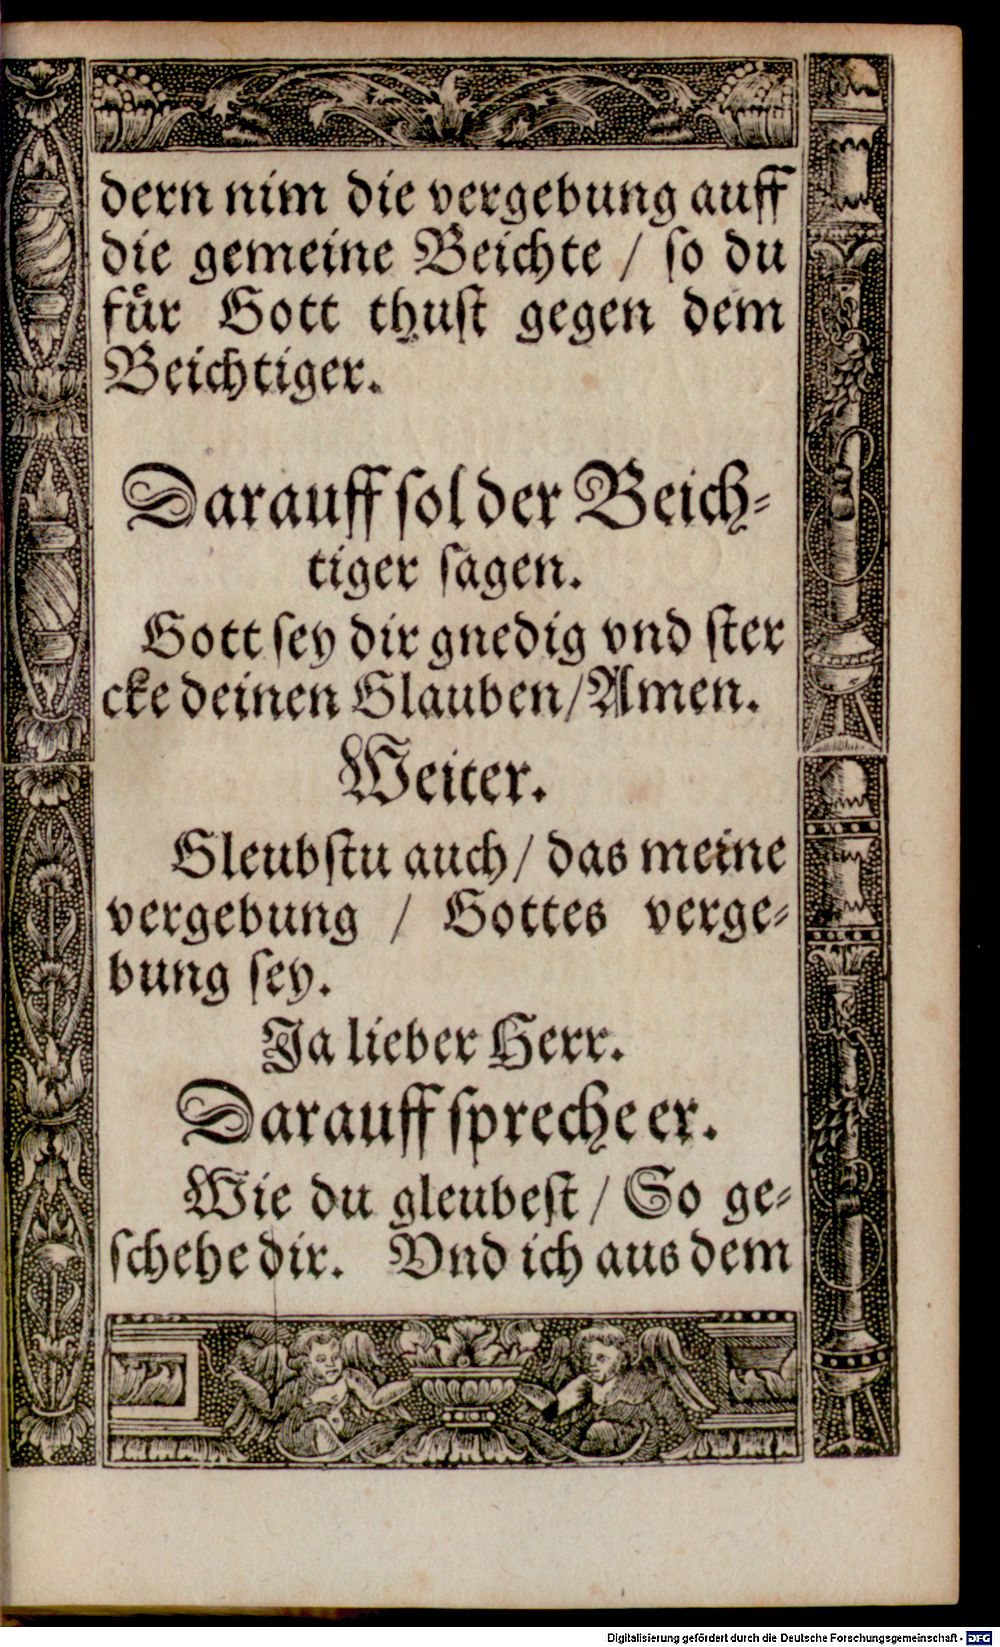 dern nim die vergebung auff
die gemeine Beichte / so du
fuͤr Gott thust gegen dem
Beichtiger.
Darauff sol der Beich⸗
tiger sagen.
Gott sey dir gnedig vnd ster
cke deinen Glauben/Amen.
Weiter.
Gleubstu auch/ das meine
vergebung / Gottes verge⸗
bung sey.
Ja lieber Herr.
Darauff spreche er.
Wie du gleubest / So ge⸗
schehe dir. Vnd ich aus dem
Digitalisierung gefördert durch die Deutsche Forschungsgemeinschaft - DFG